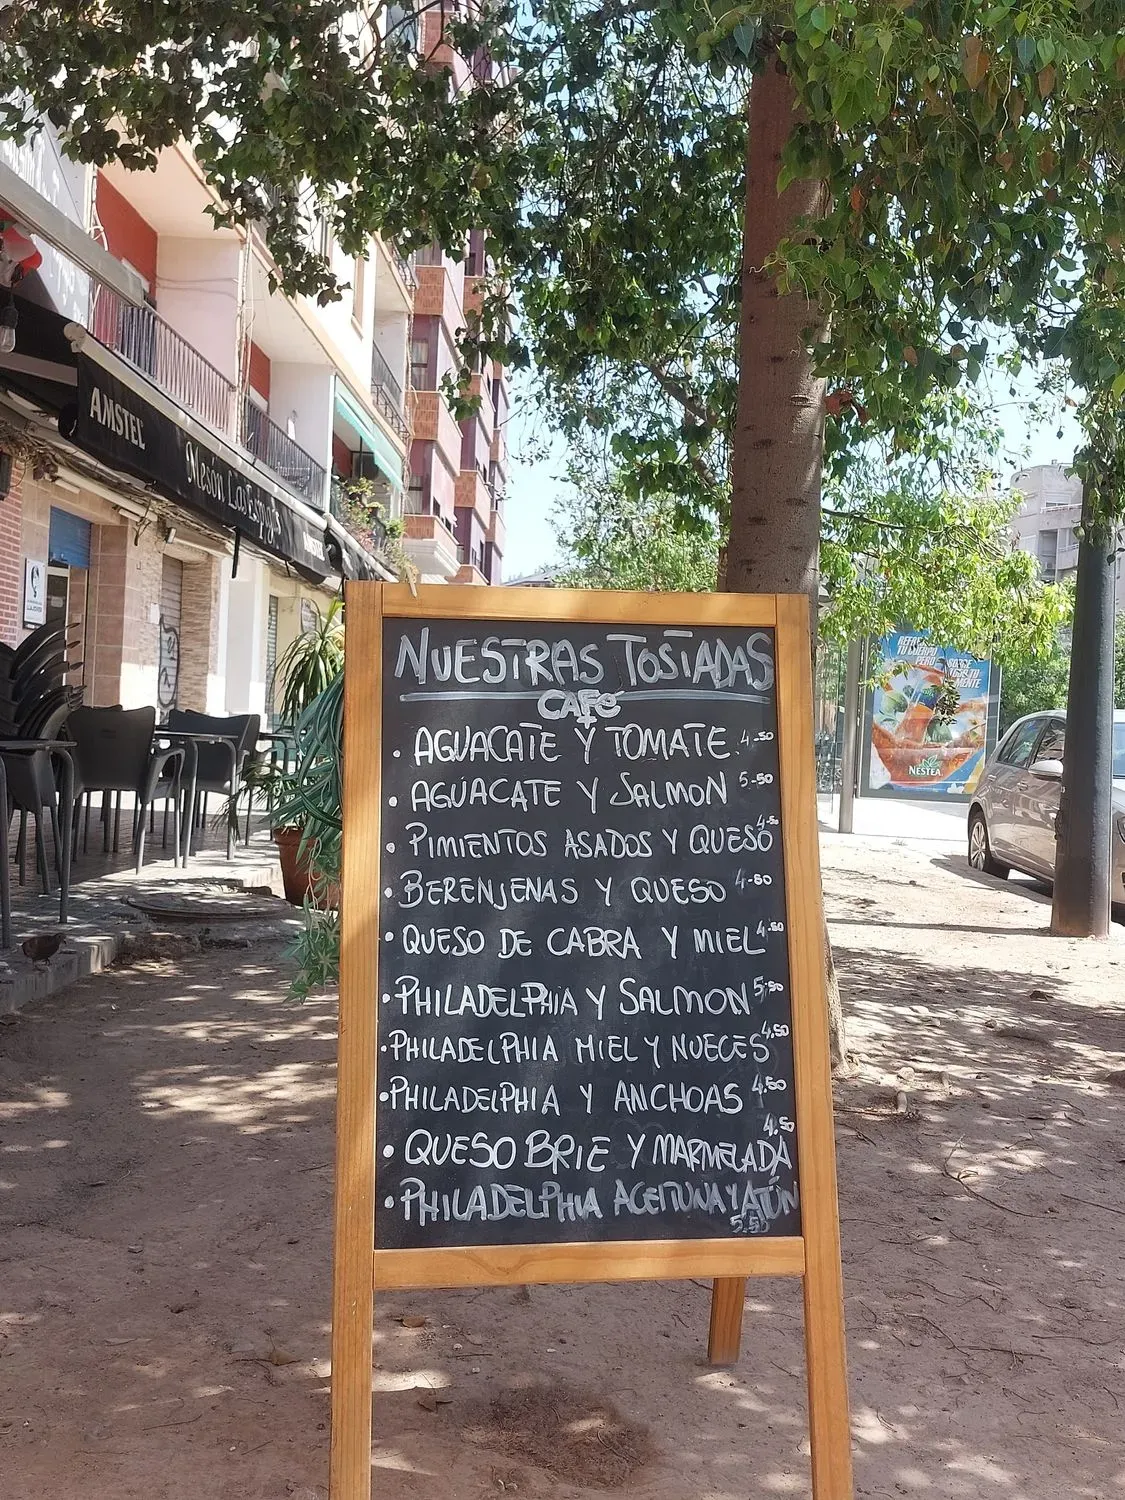 AMSTEL
Mesón Las Espigas
AMSTEL
NUESTRAS TOSTADAS
CAFé
+
• AGUACATE Y TOMATE 4-50
• AGUACATE Y SALMON 5-50
• PIMIENTOS ASADOS Y QUESO 4-50
• BERENJENAS Y QUESO 4-50
• QUESO DE CABRA Y MIEL 4.50
• PHILADELPHIA Y SALMON 5,50
• PHILADELPHIA MIEL Y NUECES 4,50
• PHILADELPHIA Y ANCHOAS 4.50
• QUESO BRIE Y MARMELADA 4.50
• PHILADELPHIA ACEITUNA Y ATÚN
5.50
REFRESCA
TU CUERPO
PERO
NESTEA